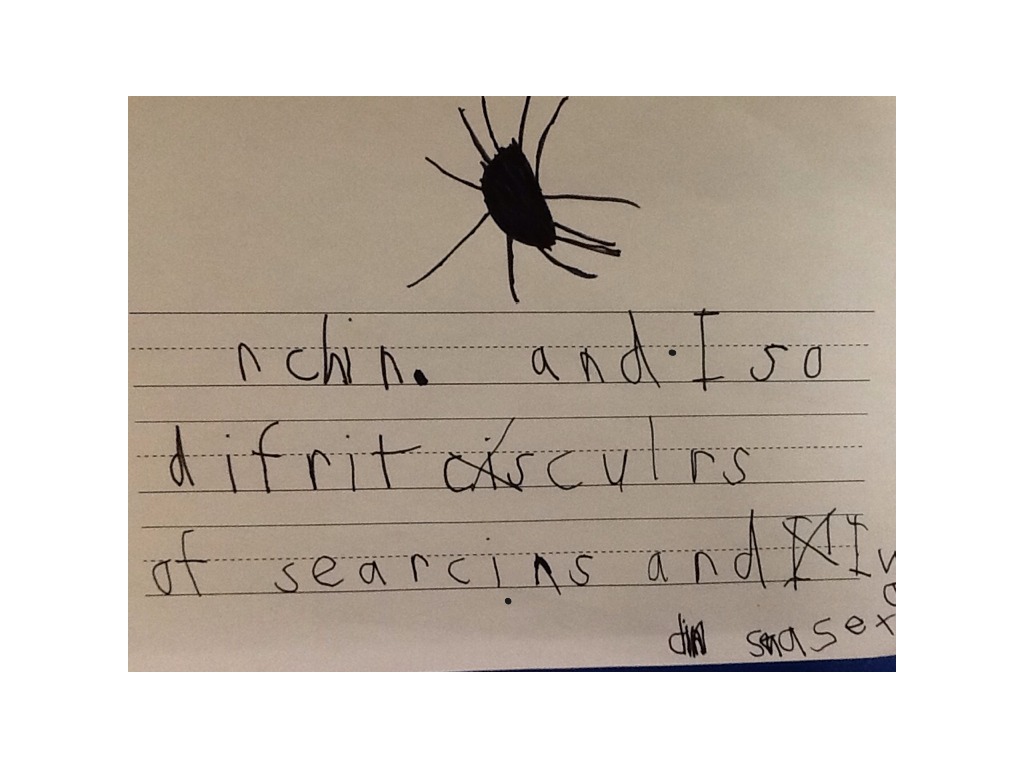 nchin. and I so
difrit culrs
of searcins and I